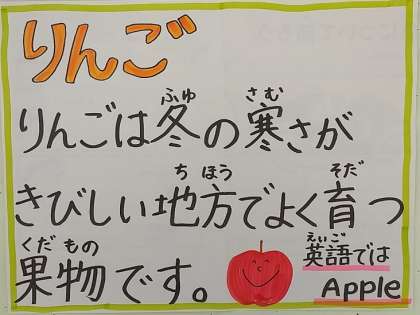 りんご
ふゆ さむ
りんごは冬の寒さが
ち ほう そだ
きびしい地方でよく育つ
くだ もの
果物です。
えいご
英語では
Apple